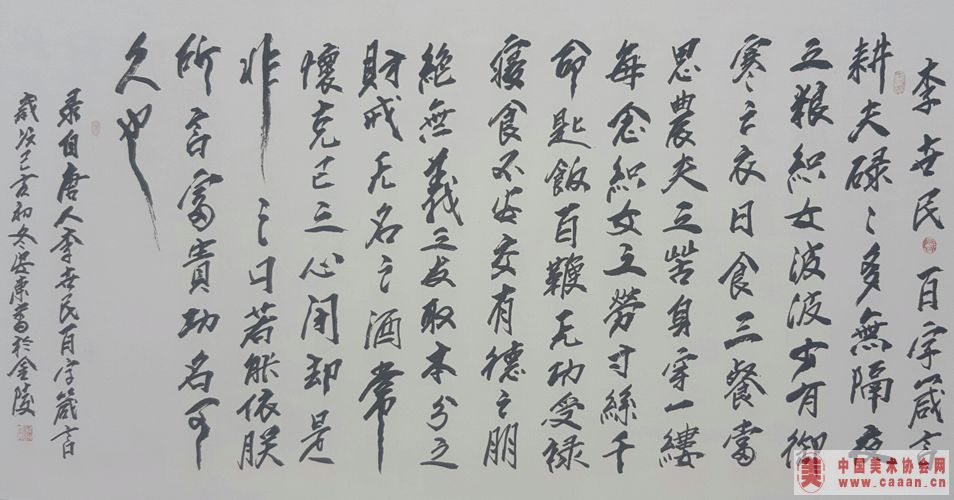 李世民百字箴言
耕夫碌〻多無隔夜
之粮織女波波少有御
寒之衣日食三餐當
思農夫之苦身穿一縷
每念織女之劳寸絲千
命匙飯百鞭无功受禄
寝食不安交有德之朋
絶無義之友取本分之
財戒无名之酒常
懷克己之心闭却是
非之口若能依朕
所言富貴功名可
久也
录自唐人李世民百字箴言
歲次己亥初冬安東書於金陵
美 中国美术协会网
www.caaan.cn